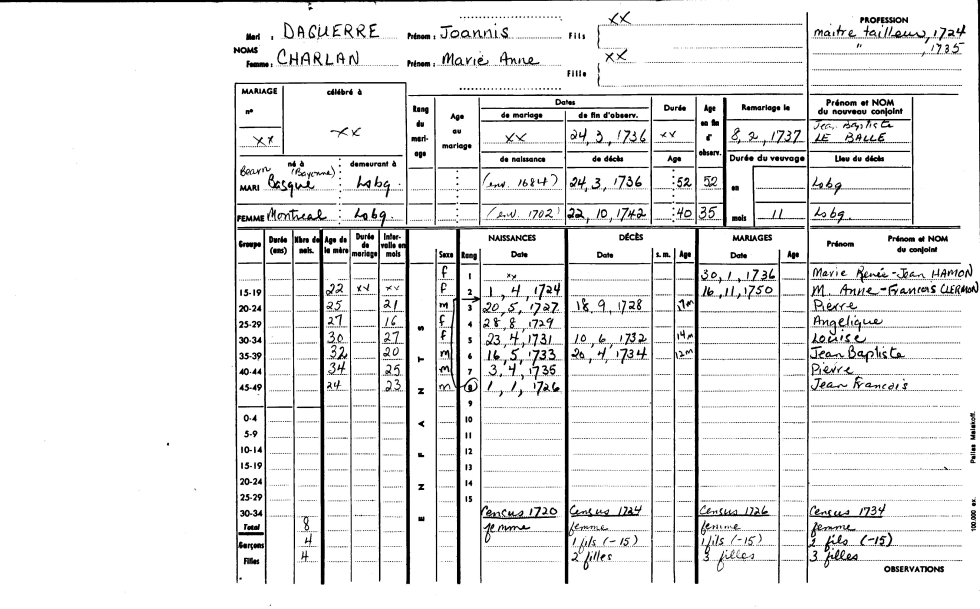 Mari : DAGUERRE Prénom : Joannis Fils XX
NOMS
Femme : CHARLAN Prénom : Marie Anne XX
Fille
PROFESSION
maitre tailleur, 1724
" , 1735
MARIAGE célébré à
n°
xx xx
Rang du mari- age
Age au mariage
Dates
de mariage de fin d'observ.
xx 24, 3, 1736
Durée
xx
Age en fin d' observ.
Remariage le
8, 2, 1737
Prénom et NOM
du nouveau conjoint
Jean Baptiste
LE BALLE
né à demeurant à
de naissance de décès Age
Durée du veuvage
Lieu du décès
Bearn (Bayonne)
MARI Basque Lsbg. (env. 1684) 24, 3, 1736 52 52 en Lsbg
FEMME Montreal Lsbg. (env. 1702) 22, 10, 1742 40 35 mois 11 Lsbg.
Groupe Durée (ans) Nbre de nais. Age de la mère Durée de mariage Inter- valle en mois
ENFANTS
Sexe Rang
NAISSANCES DÉCÈS MARIAGES
Date Date s. m. Age Date Age
Prénom Prénom et NOM
du conjoint
f 1 xx 30, 1, 1736 Marie Renée - Jean HAMON
15-19 22 xx xx f 2 1, 4, 1724 16, 11, 1750 M. Anne - Francois CLERMON
20-24 25 21 m 3 20, 5, 1727 18, 9, 1728 Pierre
25-29 27 16 f 4 28, 8, 1729 Angélique
30-34 30 27 f 5 23, 4, 1731 10, 6, 1732 14m Louise
35-39 32 20 m 6 16, 5, 1733 20, 4, 1734 12m Jean Baptiste
40-44 34 25 m 7 3, 4, 1735 Pierre
45-49 24 23 m 8 1, 1, 1726 Jean Francois
9
0-4 10
5-9 11
10-14 12
15-19 13
20-24 14
25-29 15
30-34 Census 1720 Census 1724 Census 1726 Census 1734
Total 8 femme femme femme femme
Garçons 4 1 fils (-15) 1 fils (-15) 2 fils (-15)
Filles 4 2 filles 3 filles 3 filles
OBSERVATIONS
100.000 ex. Pallas Malakoff.